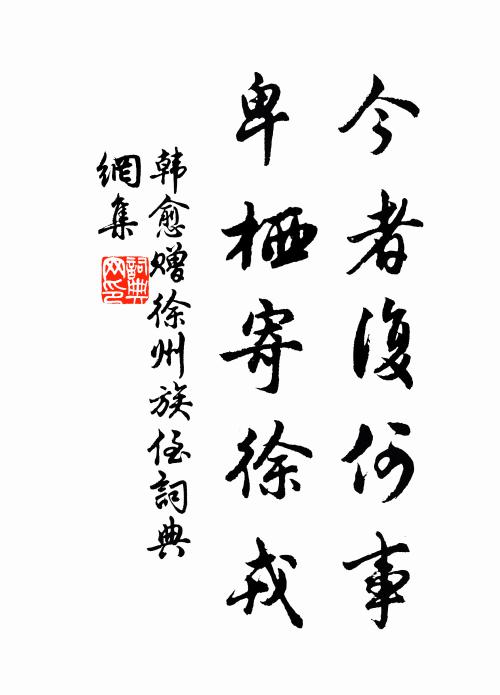 今者復何事
卑栖寄徐戎
韩愈赠徐州族侄詞典
網集
詞典
网印